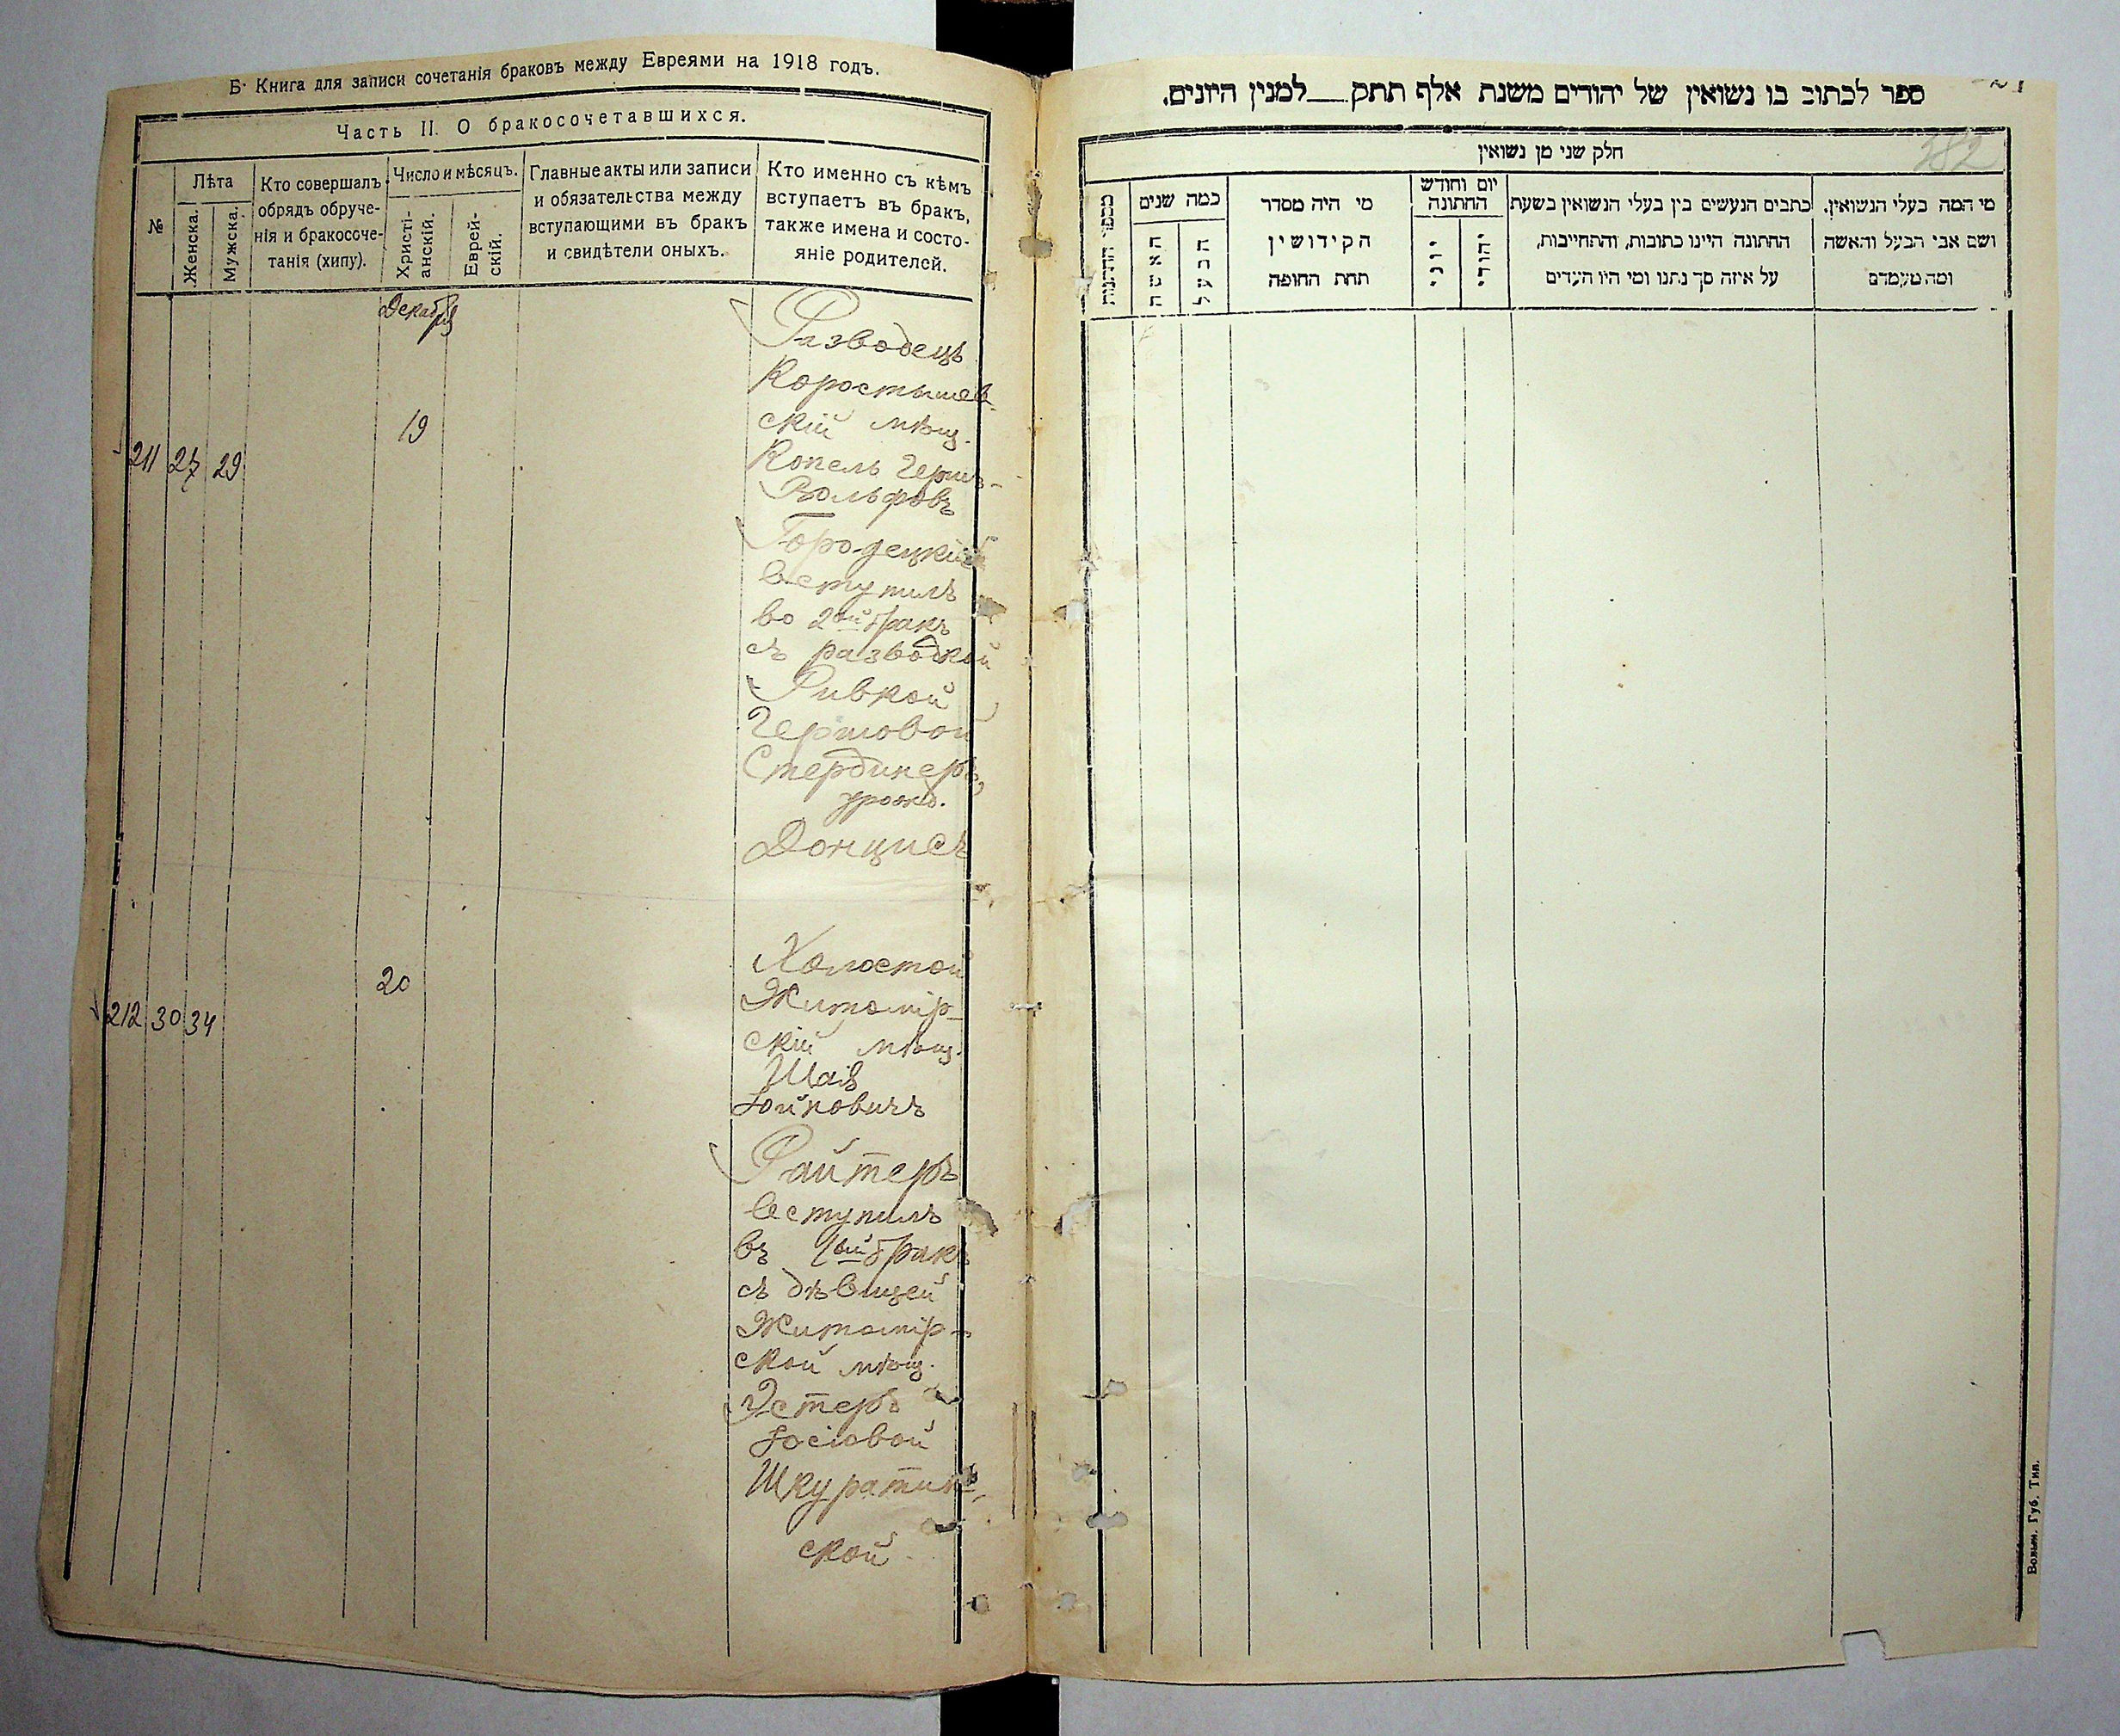 Б. Книга для записи сочетанія браковъ между Евреями на 1918 годъ.
Часть II. О бракосочетавшихся.
№
Лѣта
Женска.
Мужска.
Кто совершалъ
обрядъ обруче-
нія и бракосоче-
танія (хипу).
Число и мѣсяцъ.
Христі-
анскій.
Еврей-
скій.
Главные акты или записи
и обязательства между
вступающими въ бракъ
и свидѣтели оныхъ.
Кто именно съ кѣмъ
вступаетъ въ бракъ,
также имена и состо-
яніе родителей.
Декабря
211 27 29
19
Разводецъ
Коростышев-
скій мѣщ.
Копель Гершъ-
Вольфовъ
Городецкій
вступилъ
во 2ой бракъ
съ разводкой
Ривкой
Гершовой
Стердинеръ,
урожд.
Донцисъ
212 30 34
20
Холостой
Житомір-
скій мѣщ.
Шая
Іойновичъ
Райтеръ
вступилъ
въ 1ый бракъ
съ дѣвицей
Житомір-
ской мѣщ.
Эстеръ
Іосіовой
Шкуратин-
ской
ספר לכתוב בו נשואין של יהודים משנת אלף תתק__למנין היונים.
382
חלק שני מן נשואין
מספר החתונות
כמה שנים
האשה
הבעל
מי היה מסדר
הקידושין
תחת החופה
יום וחודש
החתונה
יוני
יהודי
כתבים הנעשים בין בעלי הנשואין בשעת
החתונה היינו כתובות, והתחייבות,
על איזה סך נתנו ומי היו העדים
מי המה בעלי הנשואין.
ושם אבי הבעל והאשה
ומה מעמדם
Волын. Губ. Тип.